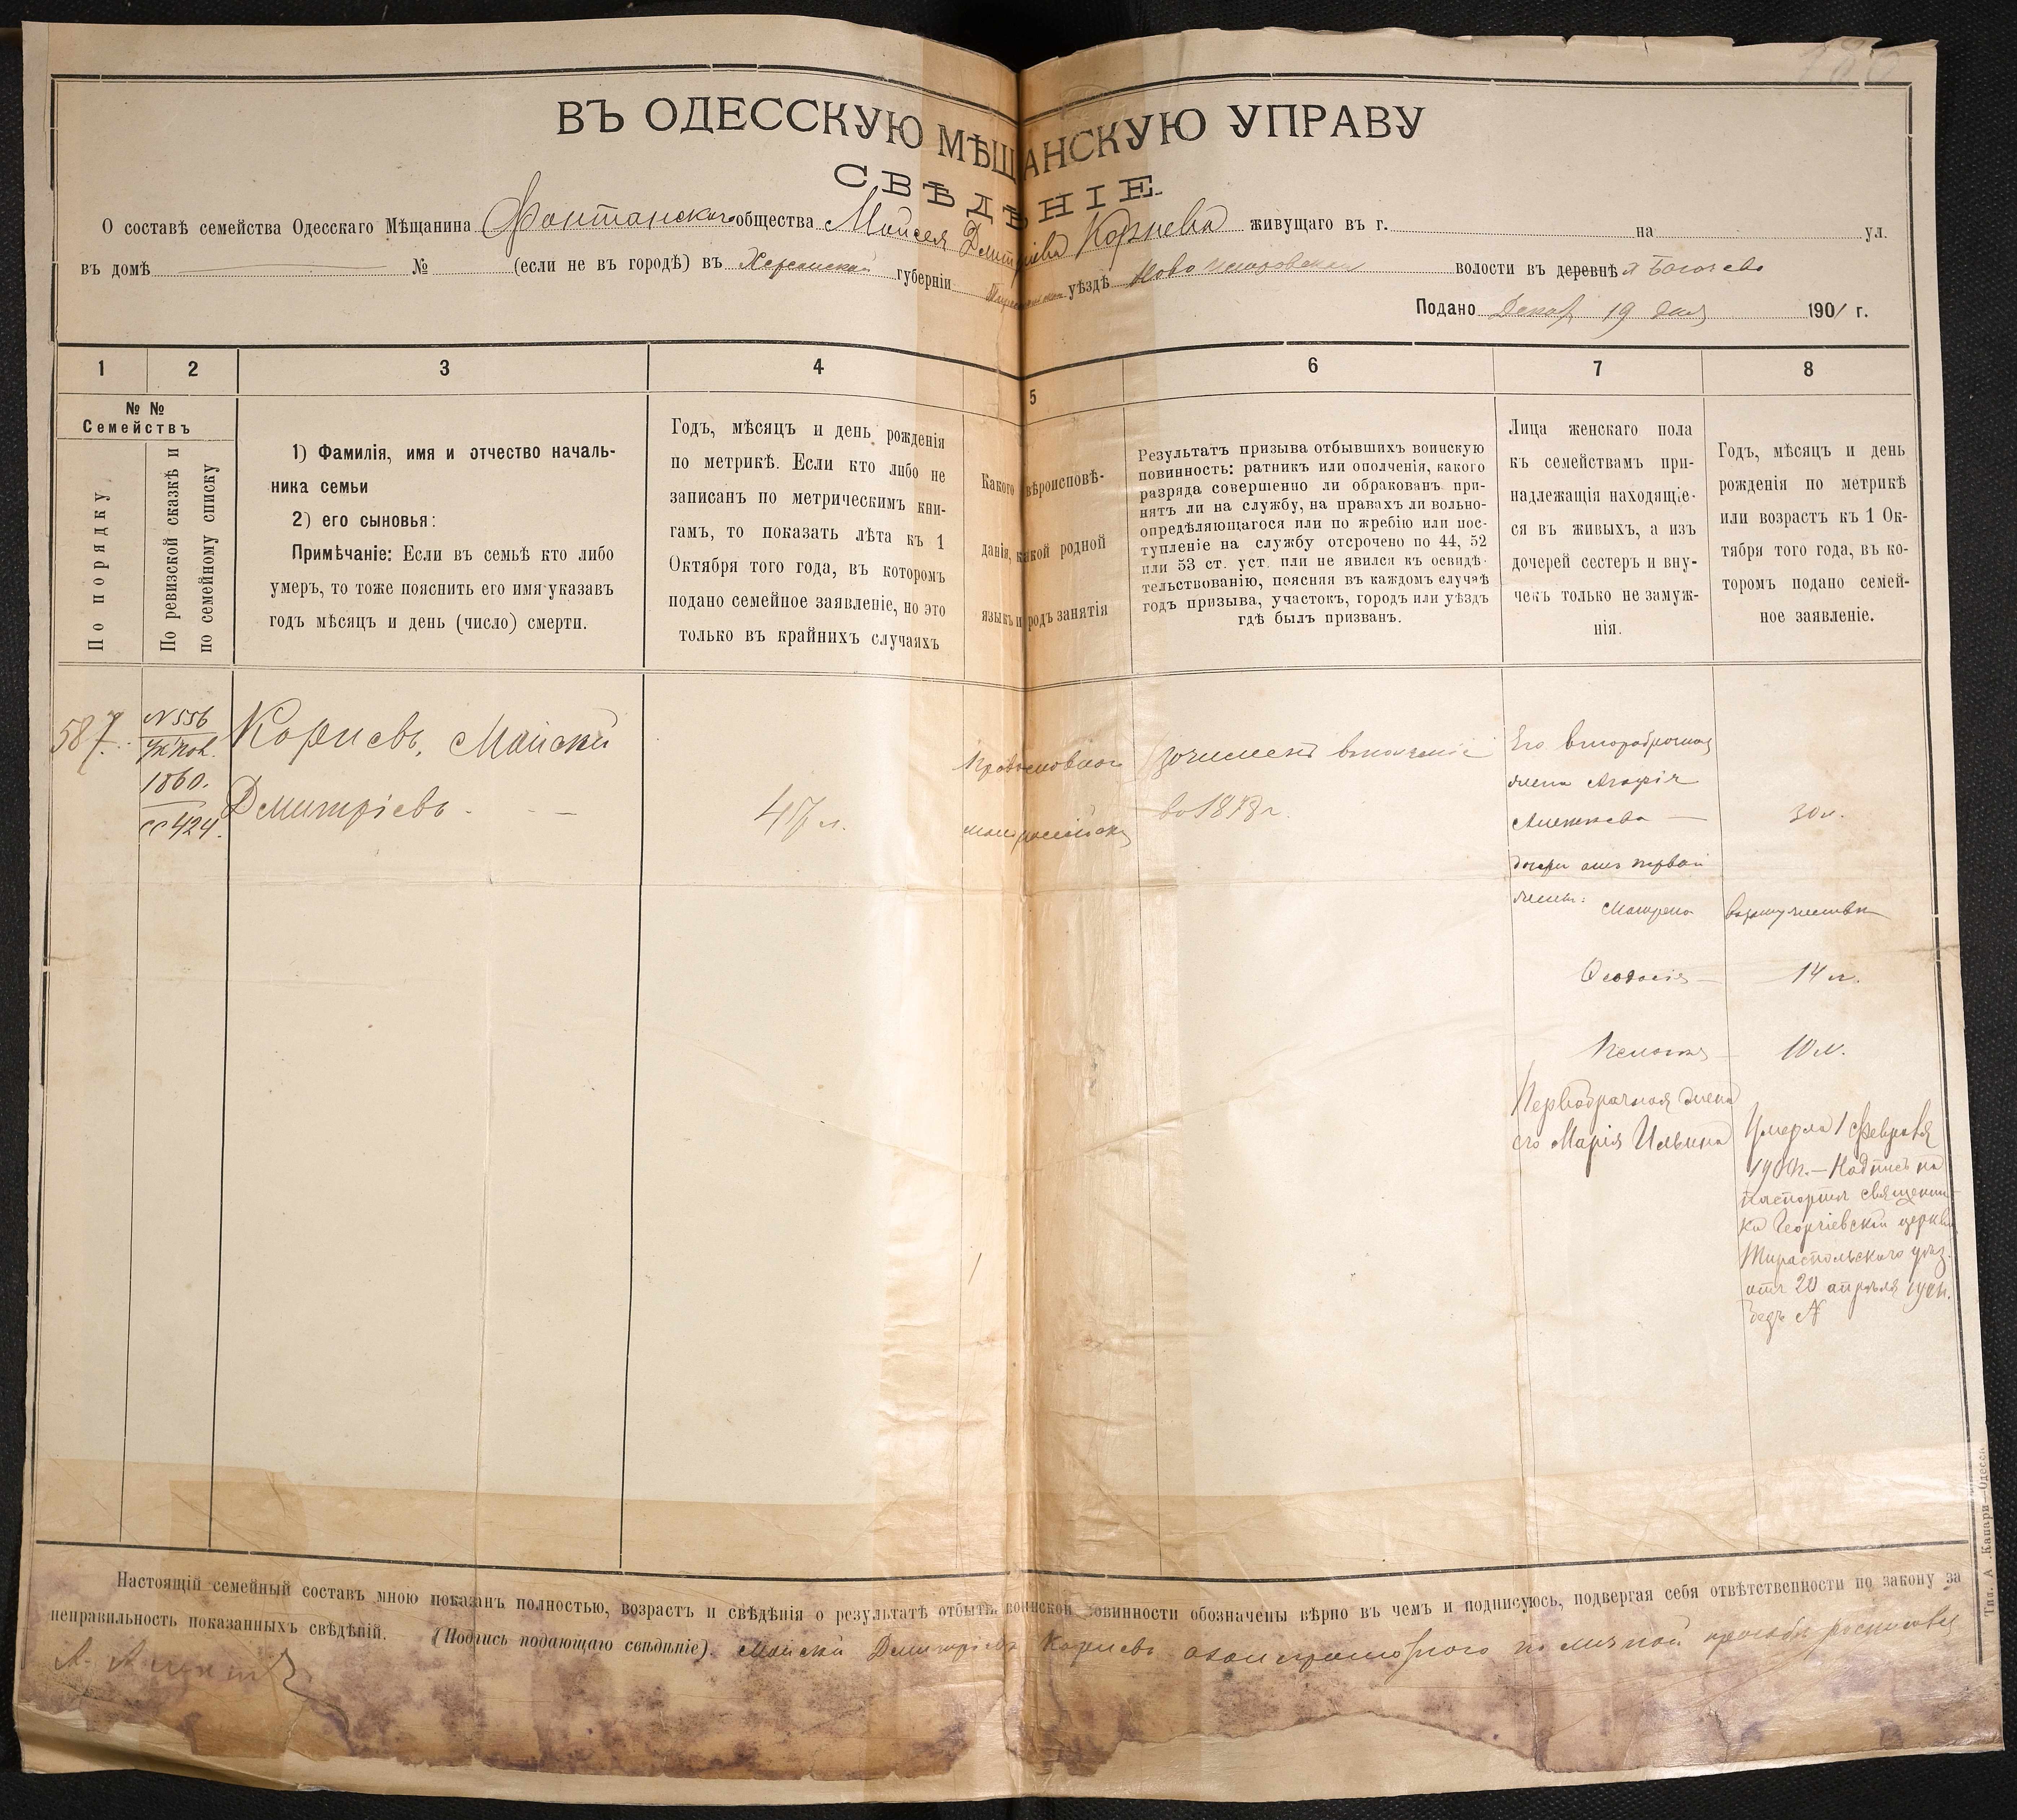 ВЪ ОДЕССКУЮ МѢЩАНСКУЮ УПРАВУ
СВѢДѢНІЕ
О составѣ семейства Одесскаго Мѣщанина Фонтанскаго общества Мойсея Дмитріева Корнева живущаго въ г. на ул.
въ домѣ № (если не въ городѣ) въ Херсонской губерніи уѣздѣ Ново волости въ деревнѣ
Подано Декаб 19 дня 1901 г.
1 2 3 4 5 6 7 8
№ №
Семействъ
По порядку
По ревизской сказкѣ и
по семейному списку
1) Фамилія, имя и отчество началь-
ника семьи
2) его сыновья:
Примѣчаніе: Если въ семьѣ кто либо
умеръ, то тоже пояснить его имя указавъ
годъ мѣсяцъ и день (число) смерти.
Годъ, мѣсяцъ и день рожденія
по метрикѣ. Если кто либо не
записанъ по метрическимъ кни-
гамъ, то показать лѣта къ 1
Октября того года, въ которомъ
подано семейное заявленіе, но это
только въ крайнихъ случаяхъ
Какого вѣроисповѣ-
данія, какой родной
языкъ и родъ занятія
Результатъ призыва отбывшихъ воинскую
повинность: ратникъ или ополченія, какого
разряда совершенно ли обракованъ при-
нятъ ли на службу, на правахъ ли вольно-
опредѣляющагося или по жребію или пос-
тупленіе на службу отсрочено по 44, 52
или 53 ст. уст. или не явился къ освидѣ-
тельствованію, поясняя въ каждомъ случаѣ
годъ призыва, участокъ, городъ или уѣздъ
гдѣ былъ призванъ.
Лица женскаго пола
къ семействамъ при-
надлежащія находящіе-
ся въ живыхъ, а изъ
дочерей сестеръ и вну-
чекъ только не замуж-
нія.
Годъ, мѣсяцъ и день
рожденія по метрикѣ
или возрастъ къ 1 Ок-
тября того года, въ ко-
торомъ подано семей-
ное заявленіе.
587.
N 556
1860.
424.
Корневъ, Мойсей
Дмитріевъ
47 л.
Православнаго
малороссійскій
зачисленъ въ ополченіе
въ 187 г.
Его второбрачная
жена Агафія
30 л.
дочери отъ первой
жены: Матрена
въ замужествѣ
Феодосія
14 л.
Пелагея
10 л.
Первобрачная жена
его Марія Ильина
Умерла 1 Февраля
190 г. — Надпись на
паспортѣ священни-
ка Георгіевской церкви
Тираспольскаго уѣз.
отъ 20 апрѣля 1901.
N
Настоящій семейный составъ мною показанъ полностью, возрастъ и свѣдѣнія о результатѣ отбыт. воинской повинности обозначены вѣрно въ чемъ и подписуюсь, подвергая себя отвѣтственности по закону за
неправильность показанныхъ свѣдѣній. (Подпись подающаго свѣдѣніе). Мойсей Дмитріевъ Корневъ а по личной просьбѣ
Тип. А. Капари—Одесса